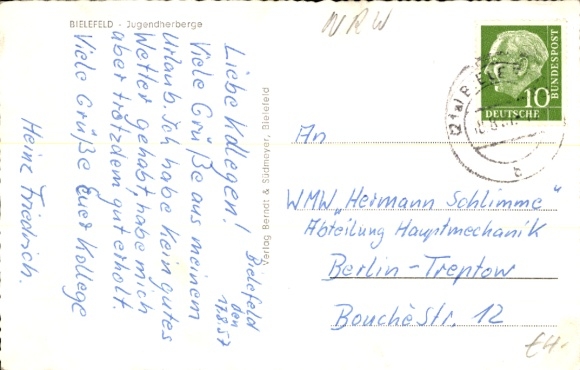 BIELEFELD - Jugendherberge
NRW
Bielefeld
den
17.8.57
Liebe Kollegen!
Viele Grüße aus meinem
Urlaub. Ich habe kein gutes
Wetter gehabt, habe mich
aber trotzdem gut erholt
Viele Grüße Euer Kollege
Heinz Friedrich.
Verlag Berndt & Südmeyer, Bielefeld
10
BUNDESPOST
DEUTSCHE
(21a)
c
An
WMW „Hermann Schlimme“
Abteilung Hauptmechanik
Berlin-Treptow
Bouchéstr. 12
€4.-